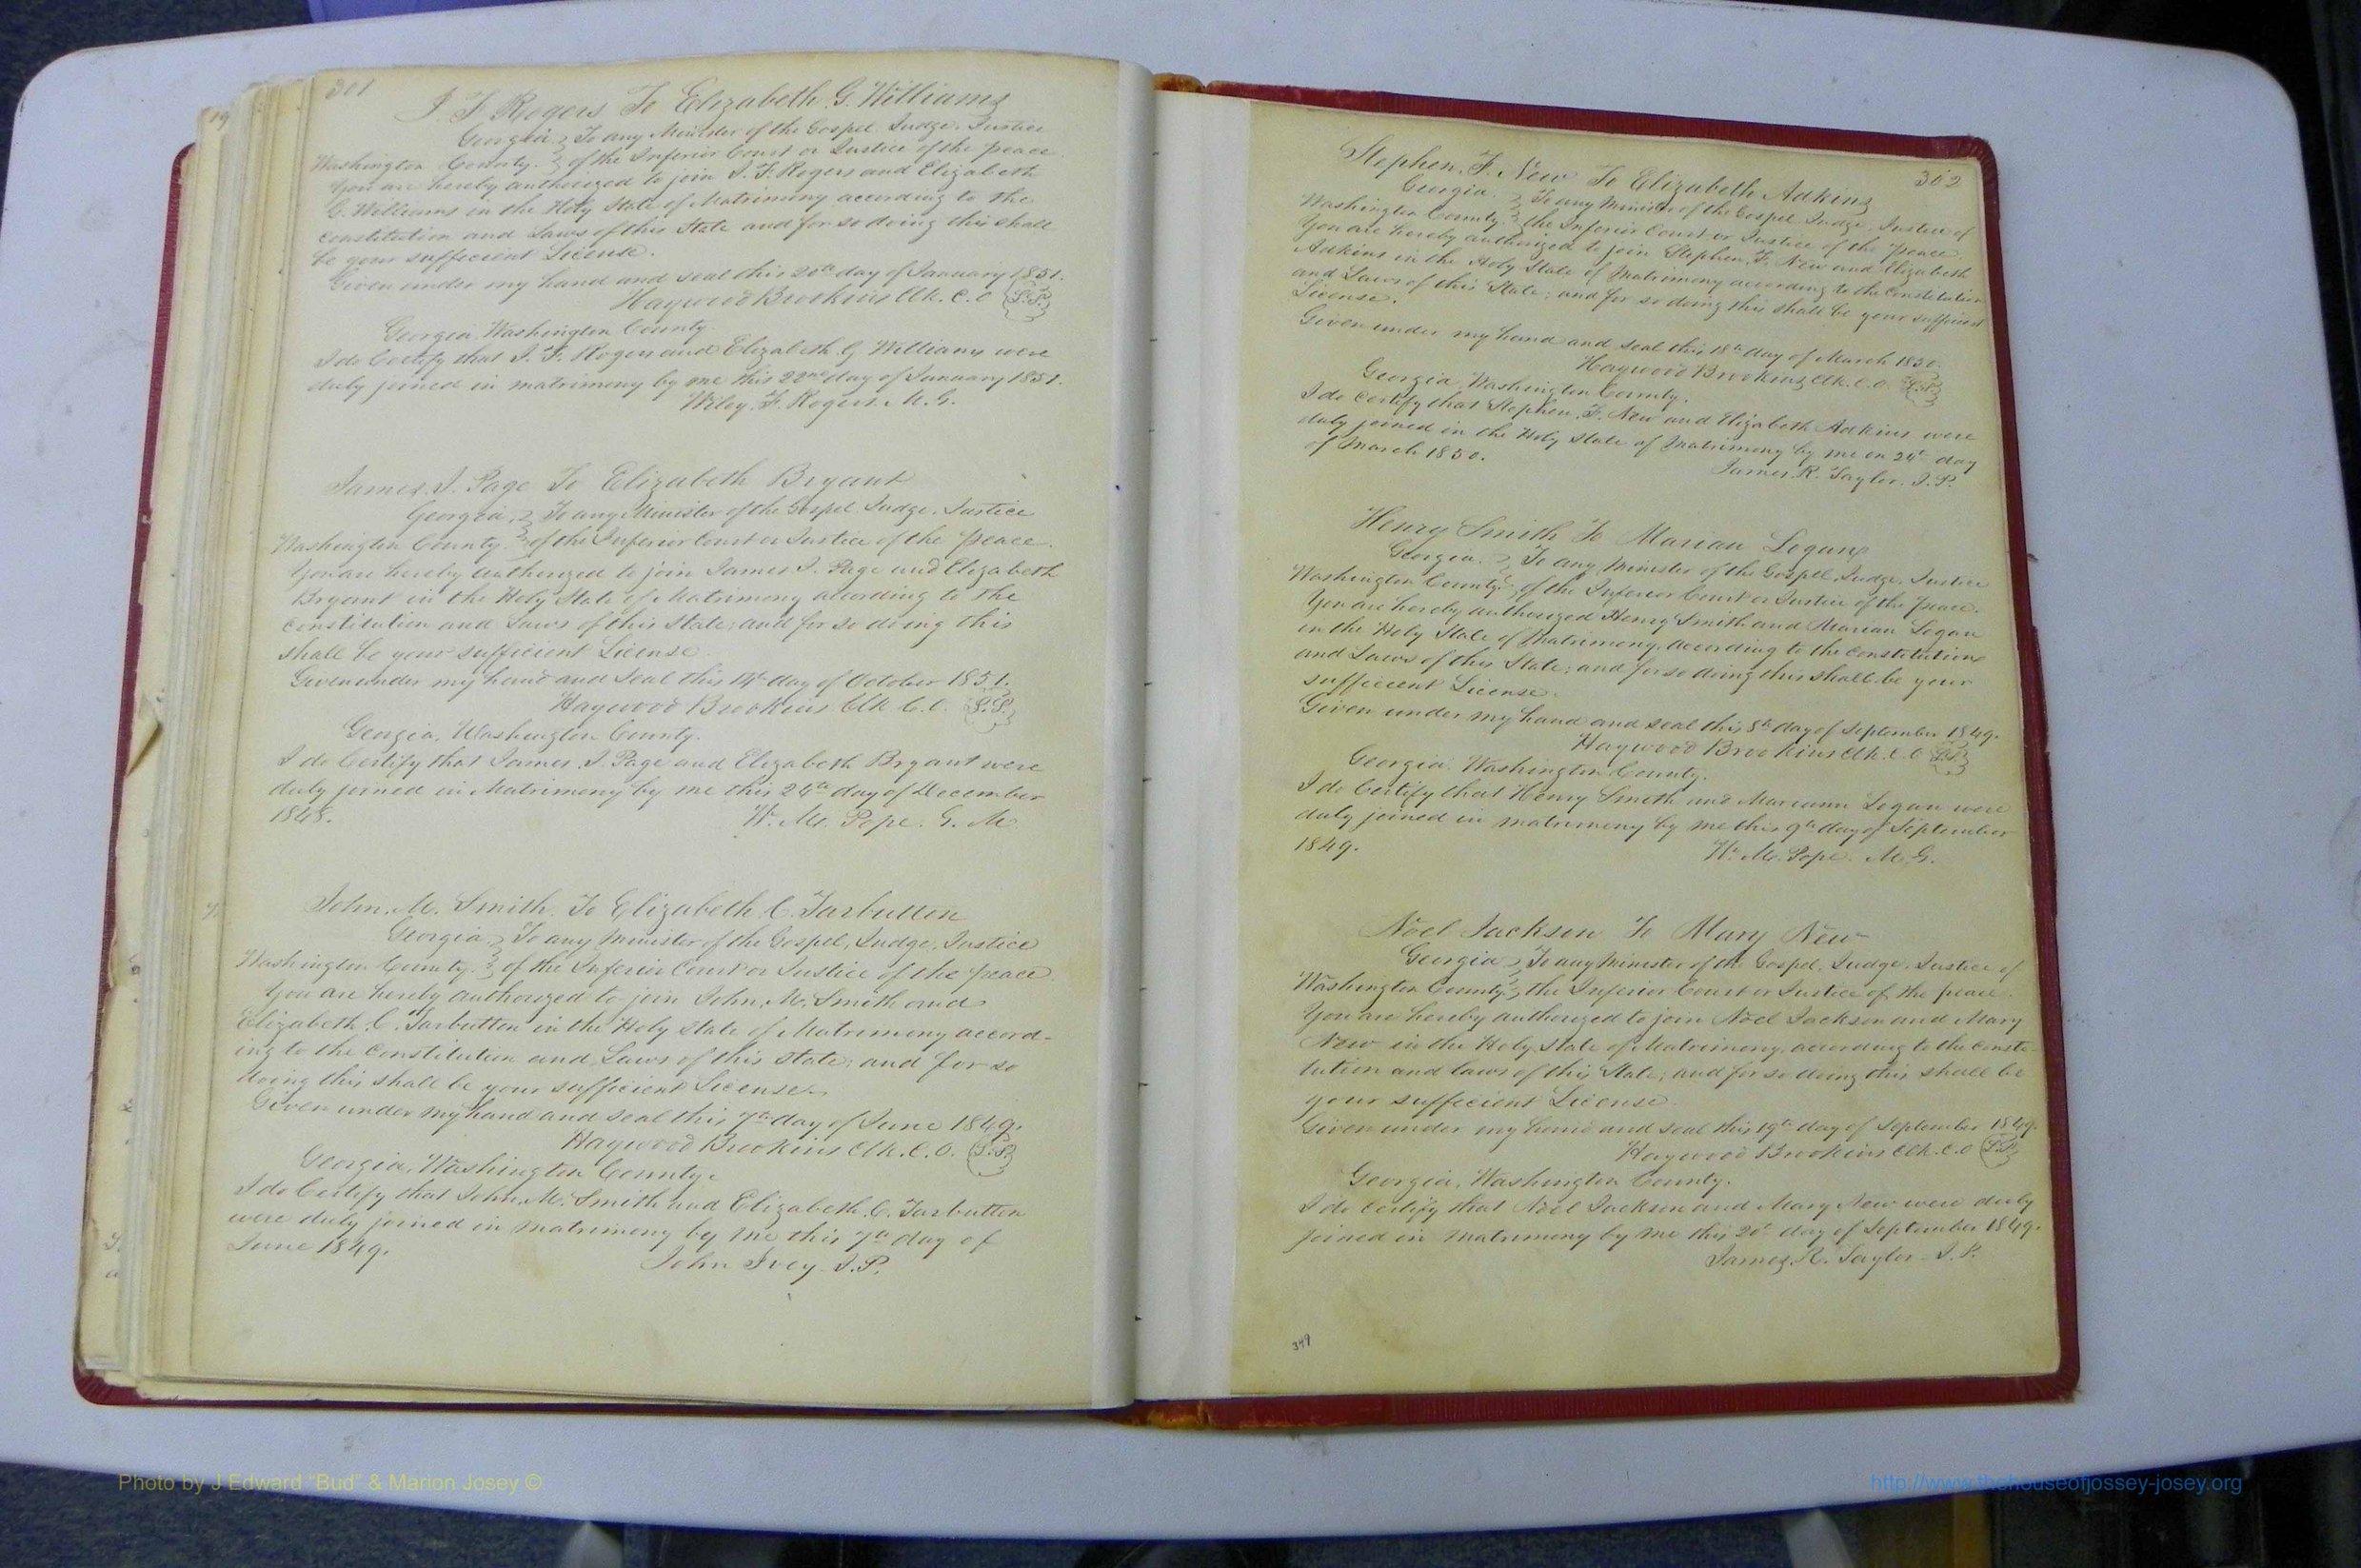 301
J. F. Rogers To Elizabeth G. Williams
Georgia } To any Minister of the Gospel. Judge. Justice
Washington County. } of the Inferior Court or Justice of the peace.
You are hereby authorized to join J. F. Rogers and Elizabeth
G. Williams in the Holy State of Matrimony according to the
constitution and Laws of this State and for so doing this shall
be your sufficient License.
Given under my hand and seal this 20th day of January 1851.
Haywood Brookins Clk. C. O (L.S.)
Georgia. Washington County.
I do Certify that J. F. Rogers and Elizabeth G Williams were
duly joined in matrimony by me this 22nd day of January 1851.
Wiley. F. Rogers. M. G.
James. J. Page To Elizabeth Bryant
Georgia, } To any Minister of the Gospel. Judge. Justice
Washington County. } of the Inferior Court or Justice of the peace.
You are hereby authorized to join James J. Page and Elizabeth
Bryant in the Holy State of Matrimony according to the
constitution and Laws of this State; and for so doing this
shall be your sufficient License
Given under my hand and Seal this 14th day of October 1851.
Haywood Brookins Clk C. O. (L.S.)
Georgia, Washington County.
I do Certify that James. J. Page and Elizabeth Bryant were
duly joined in Matrimony by me this 24th day of December
1848. W. M. Pope. G. M.
John. M. Smith. To Elizabeth. C. Tarbutton
Georgia } To any Minister of the Gospel, Judge. Justice
Washington County. } of the Inferior Court or Justice of the peace.
You are hereby authorized to join John. M. Smith and
Elizabeth. C. Tarbutton in the Holy State of Matrimony accord-
ing to the Constitution and Laws of this State; and for so
doing this shall be your sufficient License.
Given under my hand and seal this 7th day of June 1849.
Haywood Brookins Clk. C. O. (L.S.)
Georgia, Washington County.
I do Certify that John. M. Smith and Elizabeth. C. Tarbutton
were duly joined in matrimony by me this 7th day of
June 1849. John Ivey. J. P.
302
Stephen. F. New To Elizabeth Adkins
Georgia. } To any Minister of the Gospel Judge. Justice of
Washington County. } the Inferior Court or Justice of the peace.
You are hereby authorized to join Stephen. F. New and Elizabeth
Adkins in the Holy State of Matrimony according to the Constitution
and Laws of this State; and for so doing this shall be your sufficient
License.
Given under my hand and seal this 18th day of March 1850.
Haywood Brookins Clk. C. O. (L.S.)
Georgia Washington County.
I do Certify that Stephen. F. New and Elizabeth Adkins were
duly joined in the Holy State of Matrimony by me on 24th day
of March 1850.
James. R. Taylor. J. P.
Henry Smith To Marian Logan
Georgia. } To any Minister of the Gospel. Judge. Justice
Washington County. } of the Inferior Court or Justice of the peace.
You are hereby authorized Henry Smith and Marian Logan
in the Holy State of Matrimony, according to the constitution
and Laws of this State; and for so doing this shall be your
sufficient License.
Given under my hand and seal this 8th day of September 1849.
Haywood Brookins Clk. C. O (L.S.)
Georgia. Washington County.
I do Certify that Henry Smith and Mariann Logan were
duly joined in matrimony by me this 9th day of September
1849. W. M. Pope. M. G.
Noel Jackson To Mary New
Georgia } To any Minister of the Gospel, Judge, Justice of
Washington County } the Inferior Court or Justice of the peace.
You are hereby authorized to join Noel Jackson and Mary
New in the Holy State of Matrimony, according to the consti-
tution and laws of this State; and for so doing this shall be
your sufficient License.
Given under my hand and seal this 19th day of September 1849.
Haywood Brookins Clk. C. O (L.S.)
Georgia, Washington County.
I do Certify that Noel Jackson and Mary New were duly
joined in matrimony by me this 20th day of September 1849.
James. R. Taylor J. P.
349
Photo by J Edward "Bud" & Marion Josey ©
http://www.thehouseofjossey-josey.org